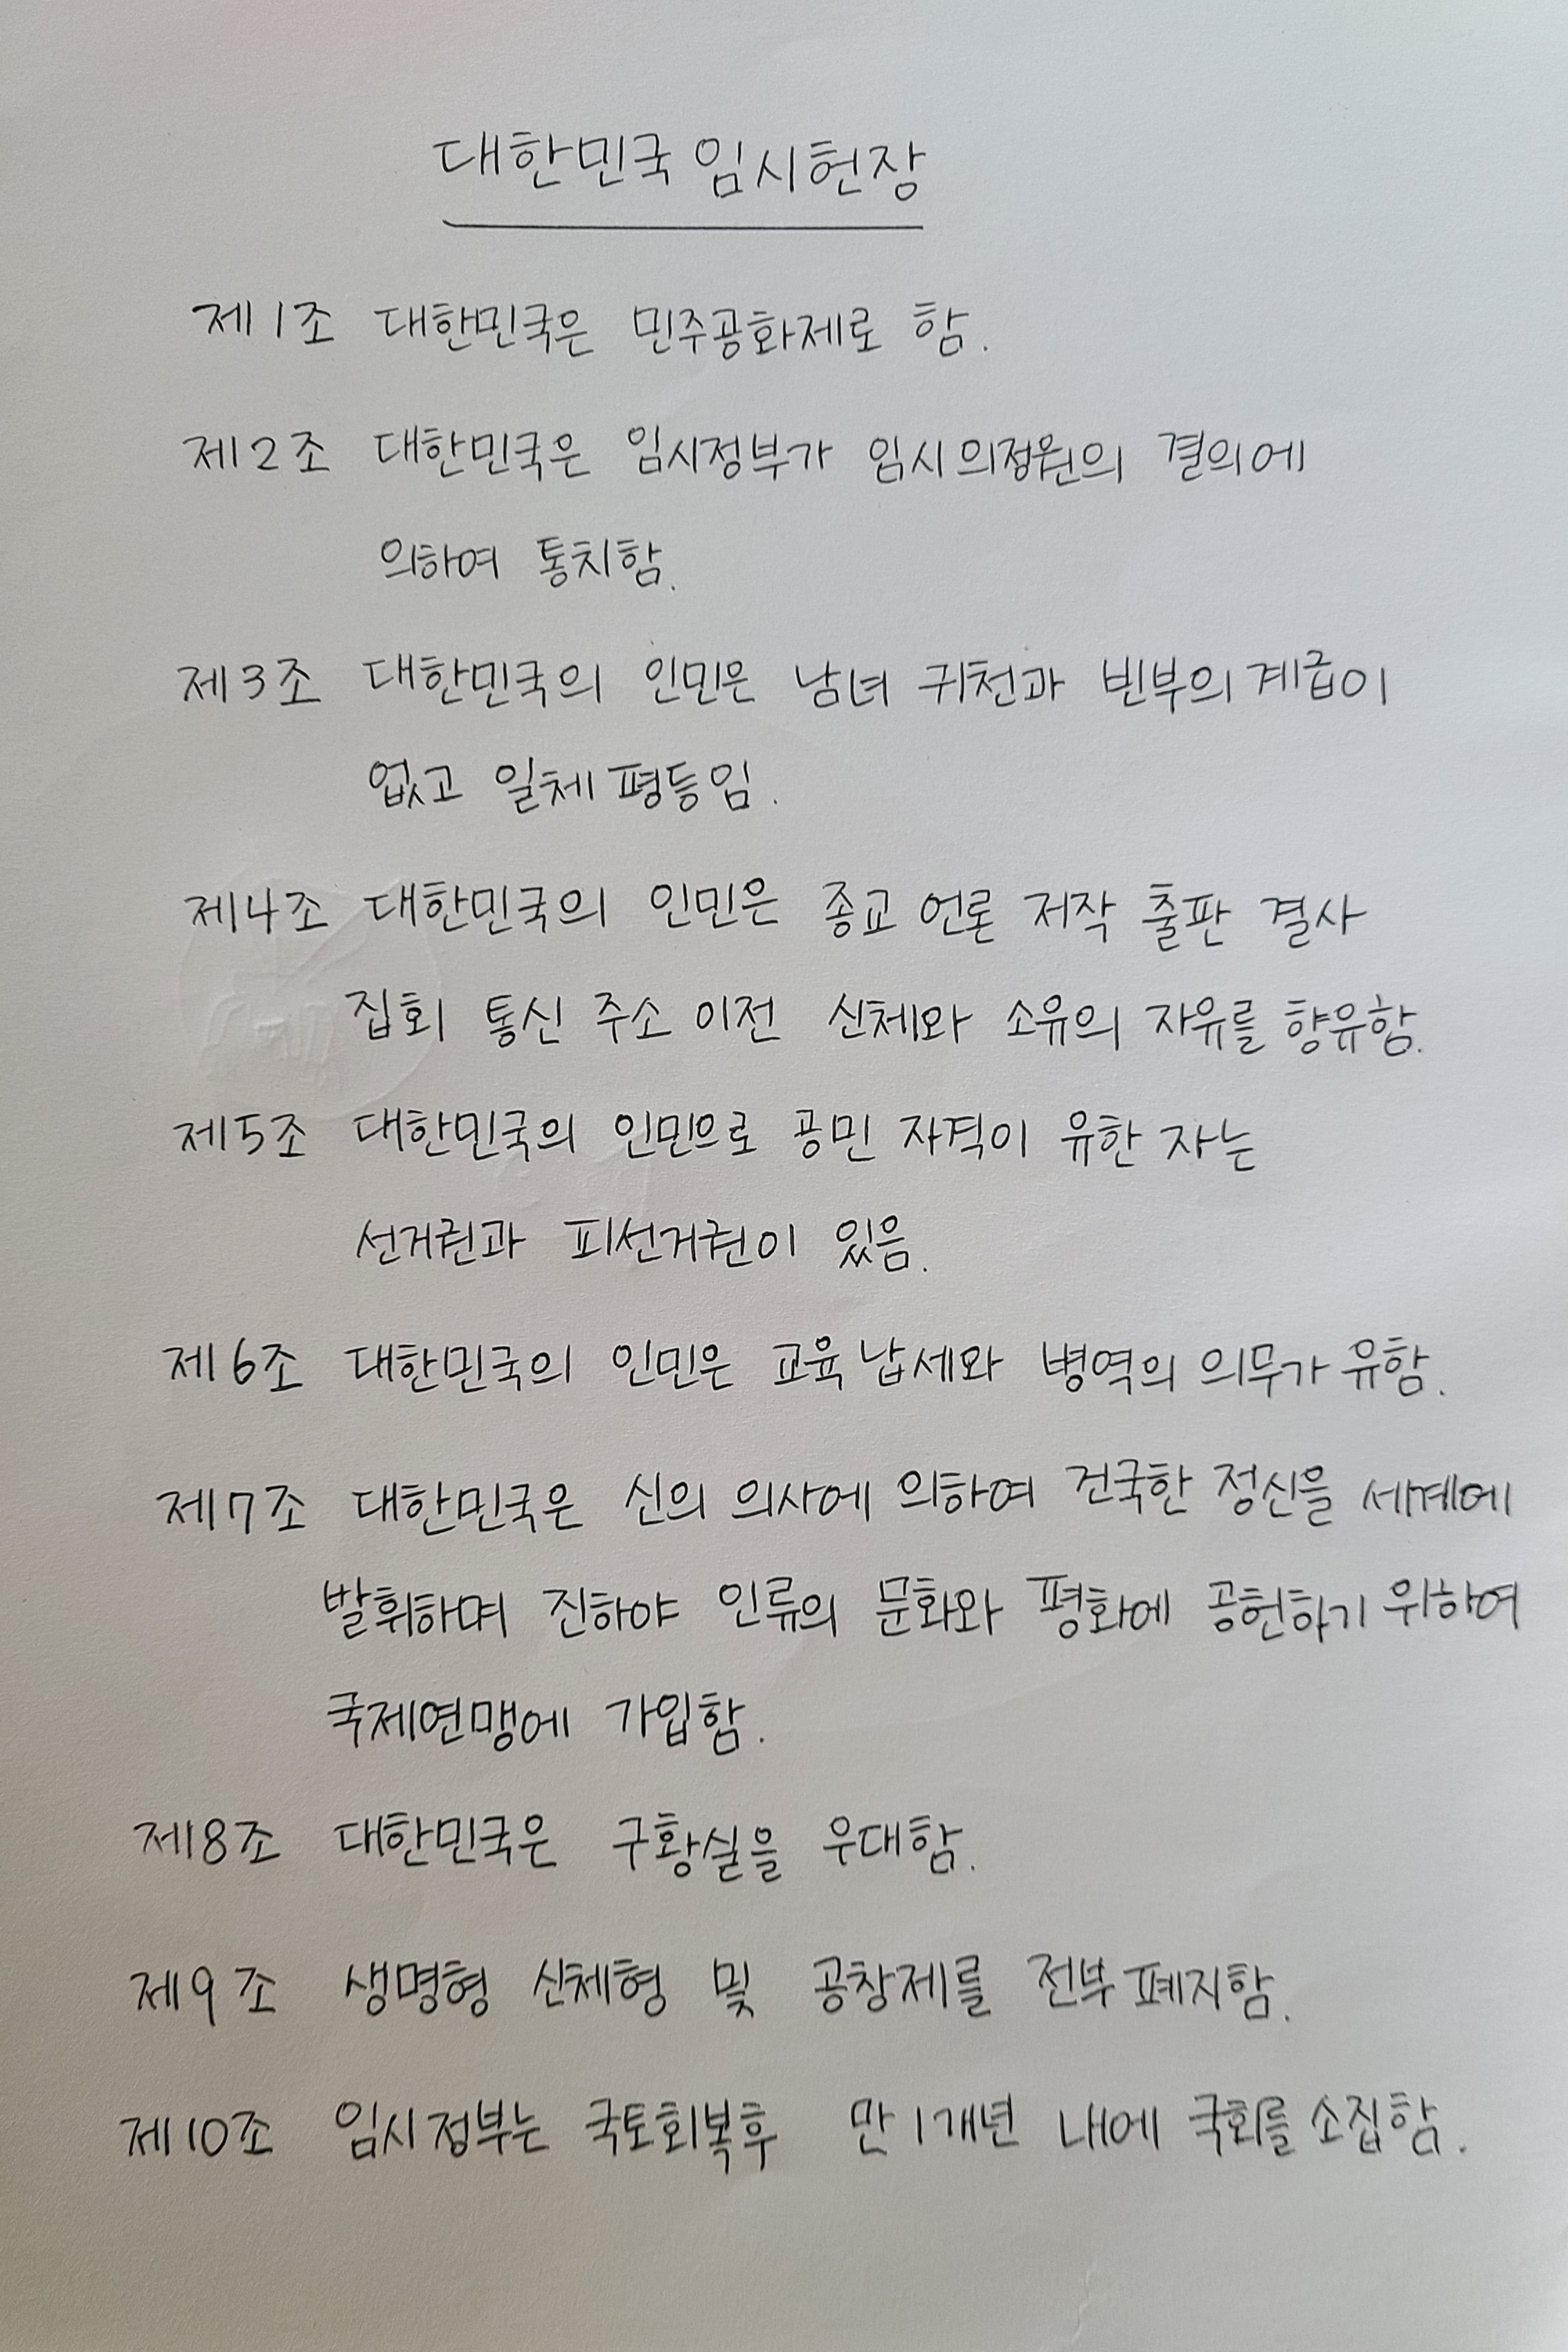 대한민국 임시헌장
제1조 대한민국은 민주공화제로 함.
제2조 대한민국은 임시정부가 임시의정원의 결의에
의하여 통치함.
제3조 대한민국의 인민은 남녀 귀천과 빈부의 계급이
없고 일체 평등임.
제4조 대한민국의 인민은 종교 언론 저작 출판 결사
집회 통신 주소 이전 신체와 소유의 자유를 향유함.
제5조 대한민국의 인민으로 공민 자격이 유한 자는
선거권과 피선거권이 있음.
제6조 대한민국의 인민은 교육 납세와 병역의 의무가 유함.
제7조 대한민국은 신의 의사에 의하여 건국한 정신을 세계에
발휘하며 진하야 인류의 문화와 평화에 공헌하기 위하여
국제연맹에 가입함.
제8조 대한민국은 구황실을 우대함.
제9조 생명형 신체형 및 공창제를 전부 폐지함.
제10조 임시정부는 국토회복후 만 1개년 내에 국회를 소집함.